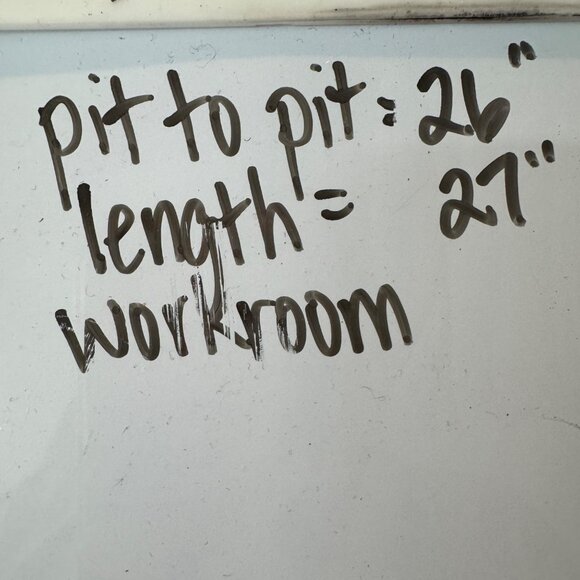 pit to pit: 26"
length = 27"
workroom